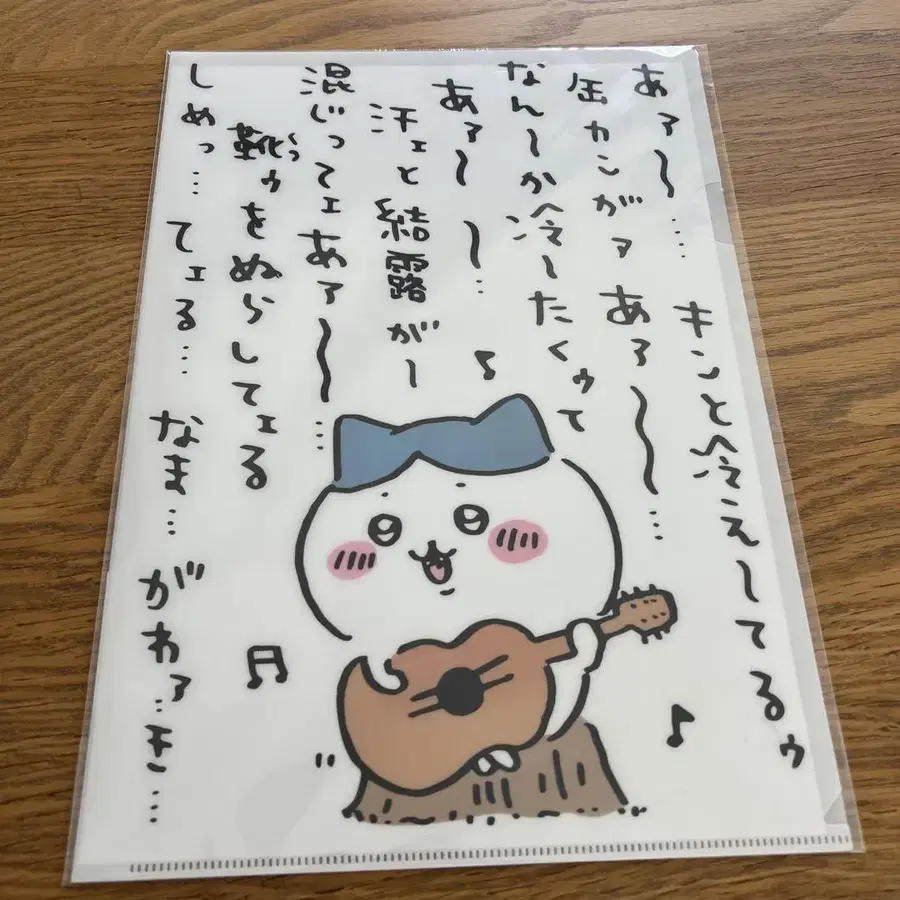 あァ〜…
キンと冷えーてるゥ
缶カンがァ あァ〜〜…
なん〜か冷〜たくゥて
あァ〜 〜…
汗ェと結露がー
混じってェあァ〜〜…
靴っゥをぬらしてェる
しめっ… てェる… なま… がわァ…き…